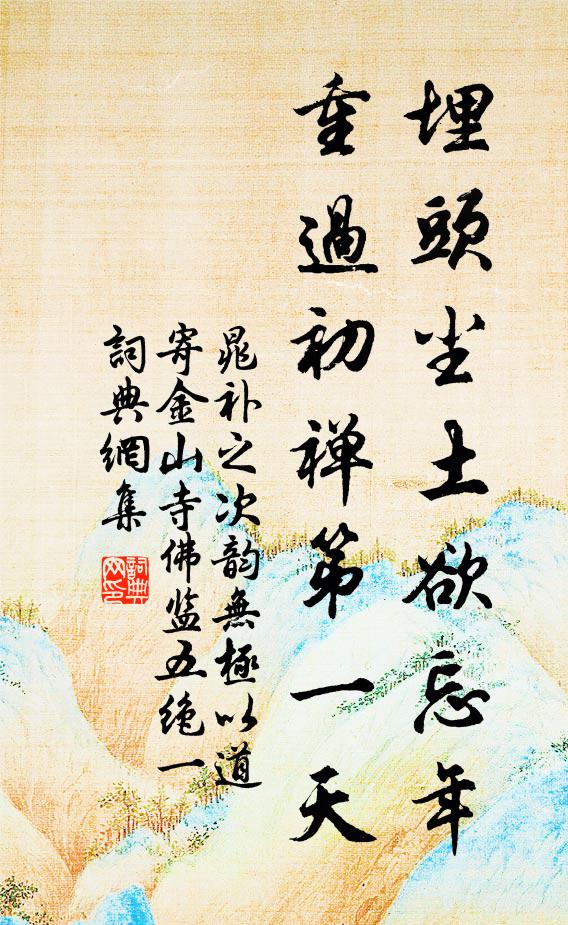 埋頭尘土欲忘年
重過初禅第一天
晁补之次韵無極以道
寄金山寺佛监五绝一
詞典網集
詞典网印